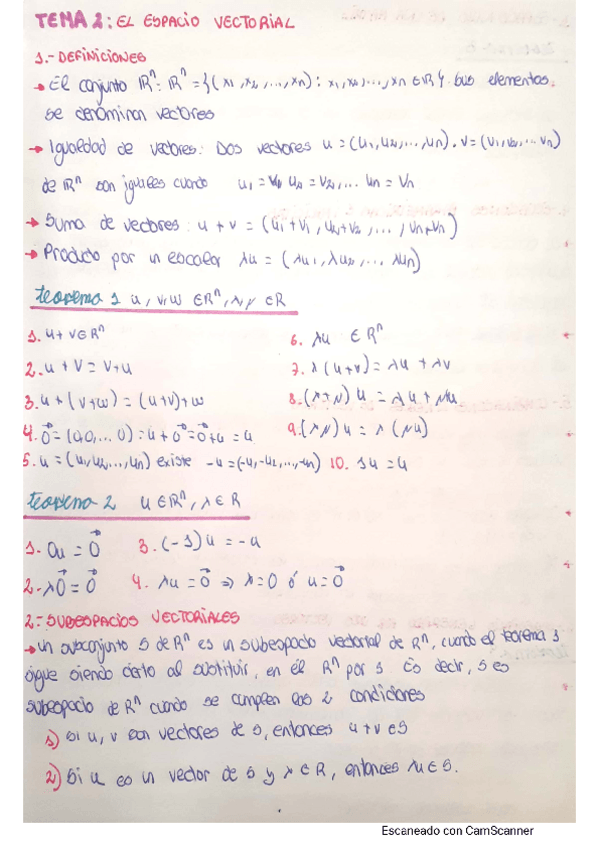 TEMA 2: EL ESPACIO VECTORIAL
1.- DEFINICIONES
→ El conjunto ℝⁿ: ℝⁿ = {(x₁, x₂, ..., xn) : x₁, x₂, ..., xn ∈ ℝ}. Sus elementos
se denominan vectores
→ Igualdad de vectores: Dos vectores u = (u₁, u₂, ..., un). v = (v₁, v₂, ... vn)
de ℝⁿ son iguales cuando u₁ = v₁ u₂ = v₂, ... un = vn
→ Suma de vectores: u + v = (u₁+v₁, u₂+v₂, ..., un+vn)
→ Producto por un escalar λu = (λu₁, λu₂, ... λun)
teorema 1 u, v, w ∈ ℝⁿ, λ, μ ∈ R
1. u + v ∈ ℝⁿ
6. λu ∈ ℝⁿ
2. u + v = v + u
7. λ(u+v) = λu + λv
3. u + (v+w) = (u+v) + w
8. (λ+μ) u = λu + μu
4. 0⃗ = (0,0,... 0) = u + 0⃗ = 0⃗ + u = u
9. (λμ) u = λ (μu)
5. u = (u₁, u₂, ..., un) existe -u = (-u₁, -u₂, ..., -un)
10. 1u = u
teorema 2 u ∈ ℝⁿ, λ ∈ R
1. 0u = 0⃗
3. (-1) u = -u
2. λ0⃗ = 0⃗
4. λu = 0⃗ ⇒ λ = 0 ó u = 0⃗
2.- SUBESPACIOS VECTORIALES
→ un subconjunto S de ℝⁿ es un subespacio vectorial de ℝⁿ, cuando el teorema 1
sigue siendo cierto al sustituir, en él ℝⁿ por S Es decir, S es
subespacio de ℝⁿ cuando se cumplen las 2 condiciones
1) Si u, v son vectores de S, entonces u + v ∈ S
2) Si u es un vector de S y λ ∈ R, entonces λu ∈ S.
Escaneado con CamScanner